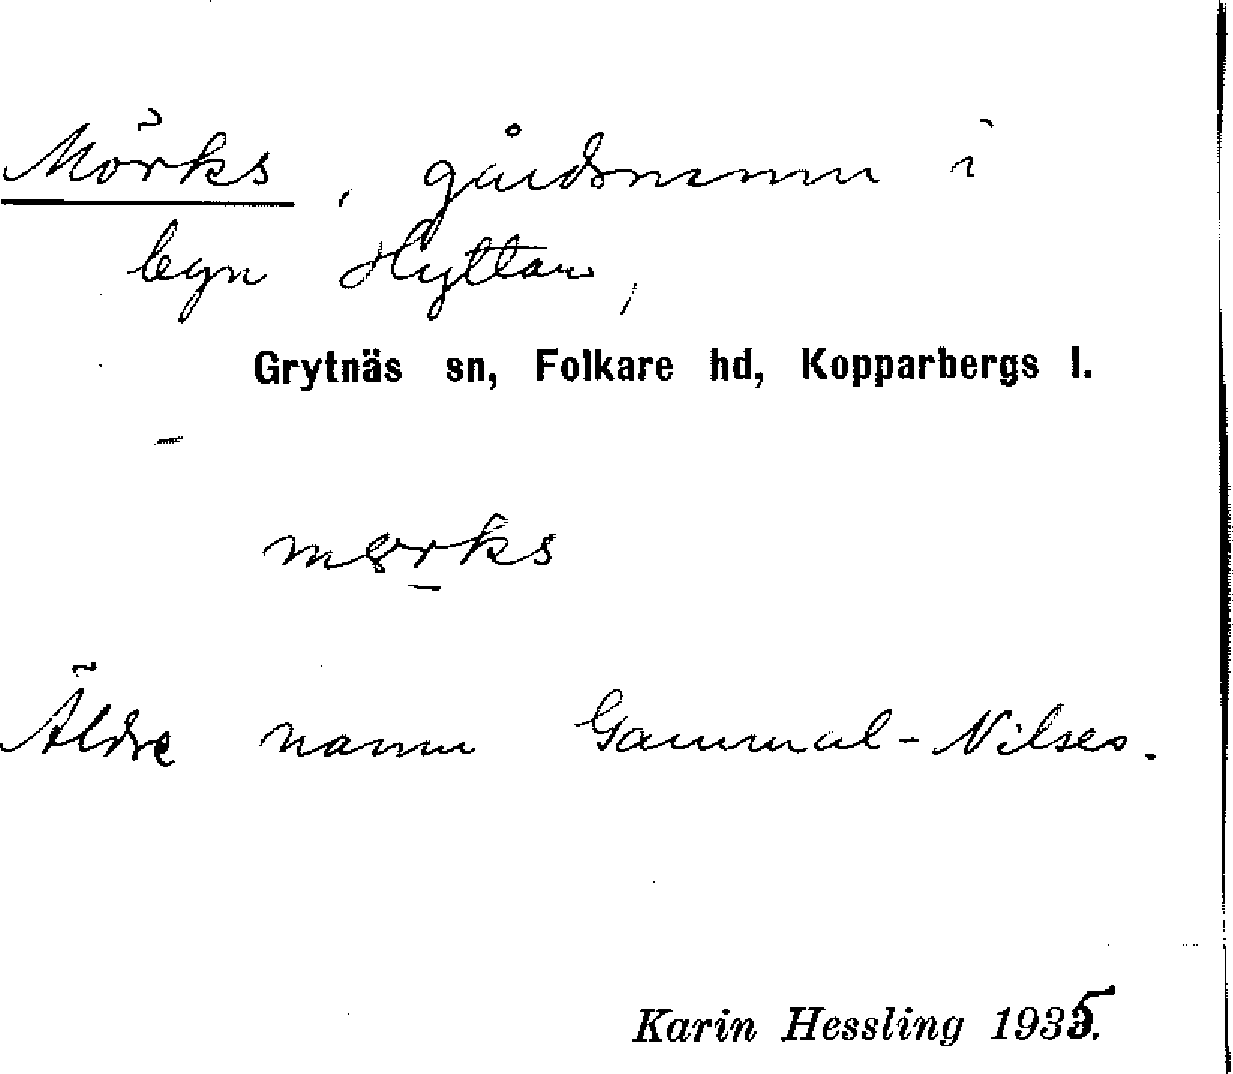 Mörks, gårdsnamn i
byn Hyttan,
Grytnäs sn, Folkare hd, Kopparbergs l.
–
mərks
Äldre namn Gammal-Nilses.
Karin Hessling 1935.